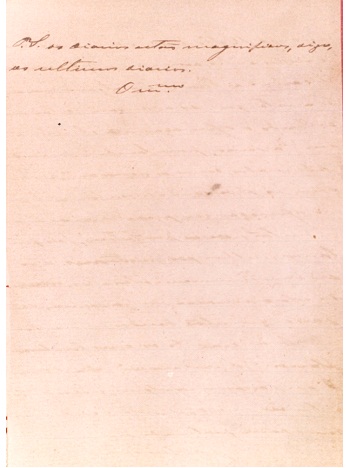 P. S. os diarios estão magnificos, digo,
os ultimos diarios.
O m.mo